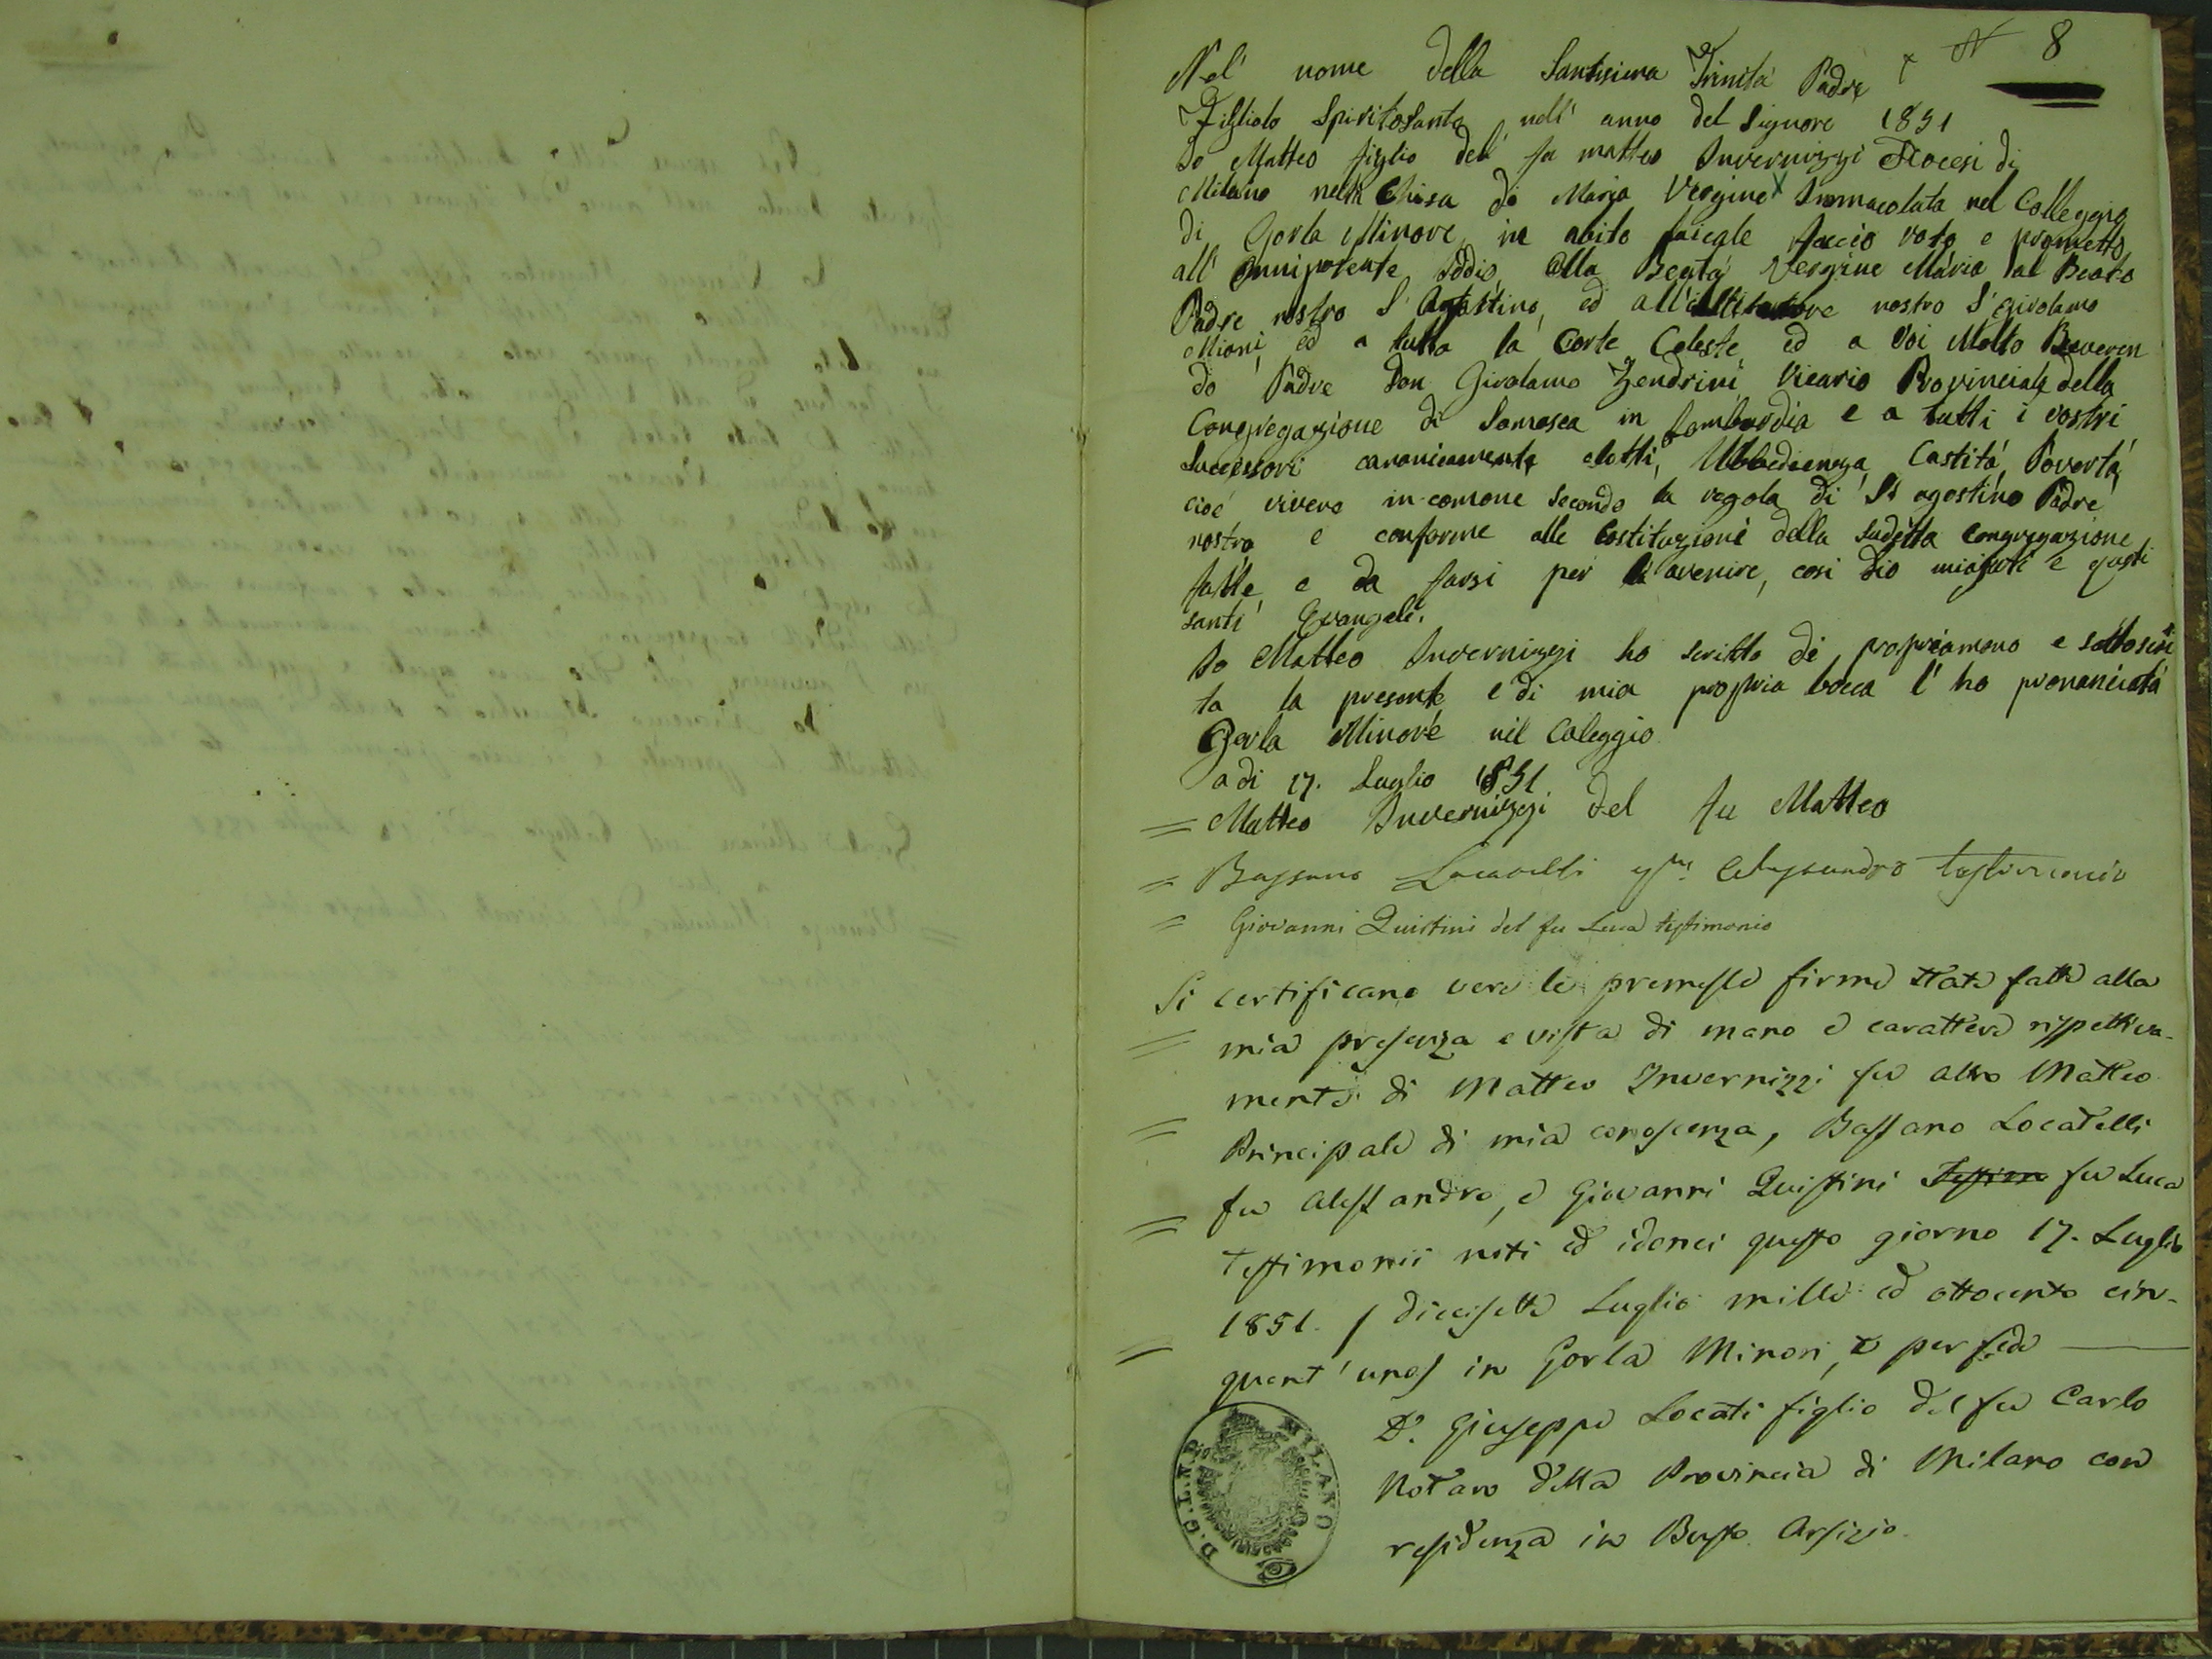 N 8
Nel' nome della Santisima Trinitá Padre
Figliolo SpiritoSanto nell' anno del Signore 1851
Io Matteo figlio del' fu matteo Invernizzi Diocesi di
Milano nella Chisa di Maria Vergine Immacolata nel Colleggio
di Gorla Minore in abito laicale faccio voto e prometto
all' Onnipotente Iddio, alla Beata Vergine Maria al Beato
Padre nostro S. Agostino, ed all' nostro S. Girolamo
Miani, ed a tutta la Corte Celeste ed a Voi Molto Reveren
do Padre Don Girolamo Zendrini Vicario Provinciale della
Congregazione di Somasca in Lombardia e a tutti i vostri
Successori canonicamente eletti, Ubbedienza, Castitá, Povertá,
cioé vivere in comone secondo la regola di St agostino Padre
nostro e conforme alle Costituzioni della sudetta Congregazione
fatte e da farsi per l'avenire, cosi Dio miajuti e questi
santi Evangeli.
Io Matteo Invernizzi ho scritto di propriamano e sottoscri
ta la presente e di mia propria bocca l' ho pronunciata
Gorla Minore nel Coleggio
a di 17. Luglio 1851
= Matteo Invernizzi del fu Matteo
= Bassano Locatelli qm. Alessandro testimonio
= Giovanni Quistini del fu Luca testimonio
Si certificano vere le premesse firme state fatte alla
= mia presenza e vista di mano e carattere rispettiva-
mente di Matteo Invernizzi fu altro Matteo
= Principale di mia conoscenza, Bassano Locatelli
fu Alessandro, e Giovanni Quistini Testimo fu Luca
= Testimonii noti ed idonei questo giorno 17. Luglio
1851. / diecisette Luglio mille ed ottocento cin-
= quant' uno / in Gorla Minore, e per fede
Dr. Giuseppe Locati figlio del fu Carlo
Notaro della Provincia di Milano con
residenza in Busto Arsizio.
MILANO